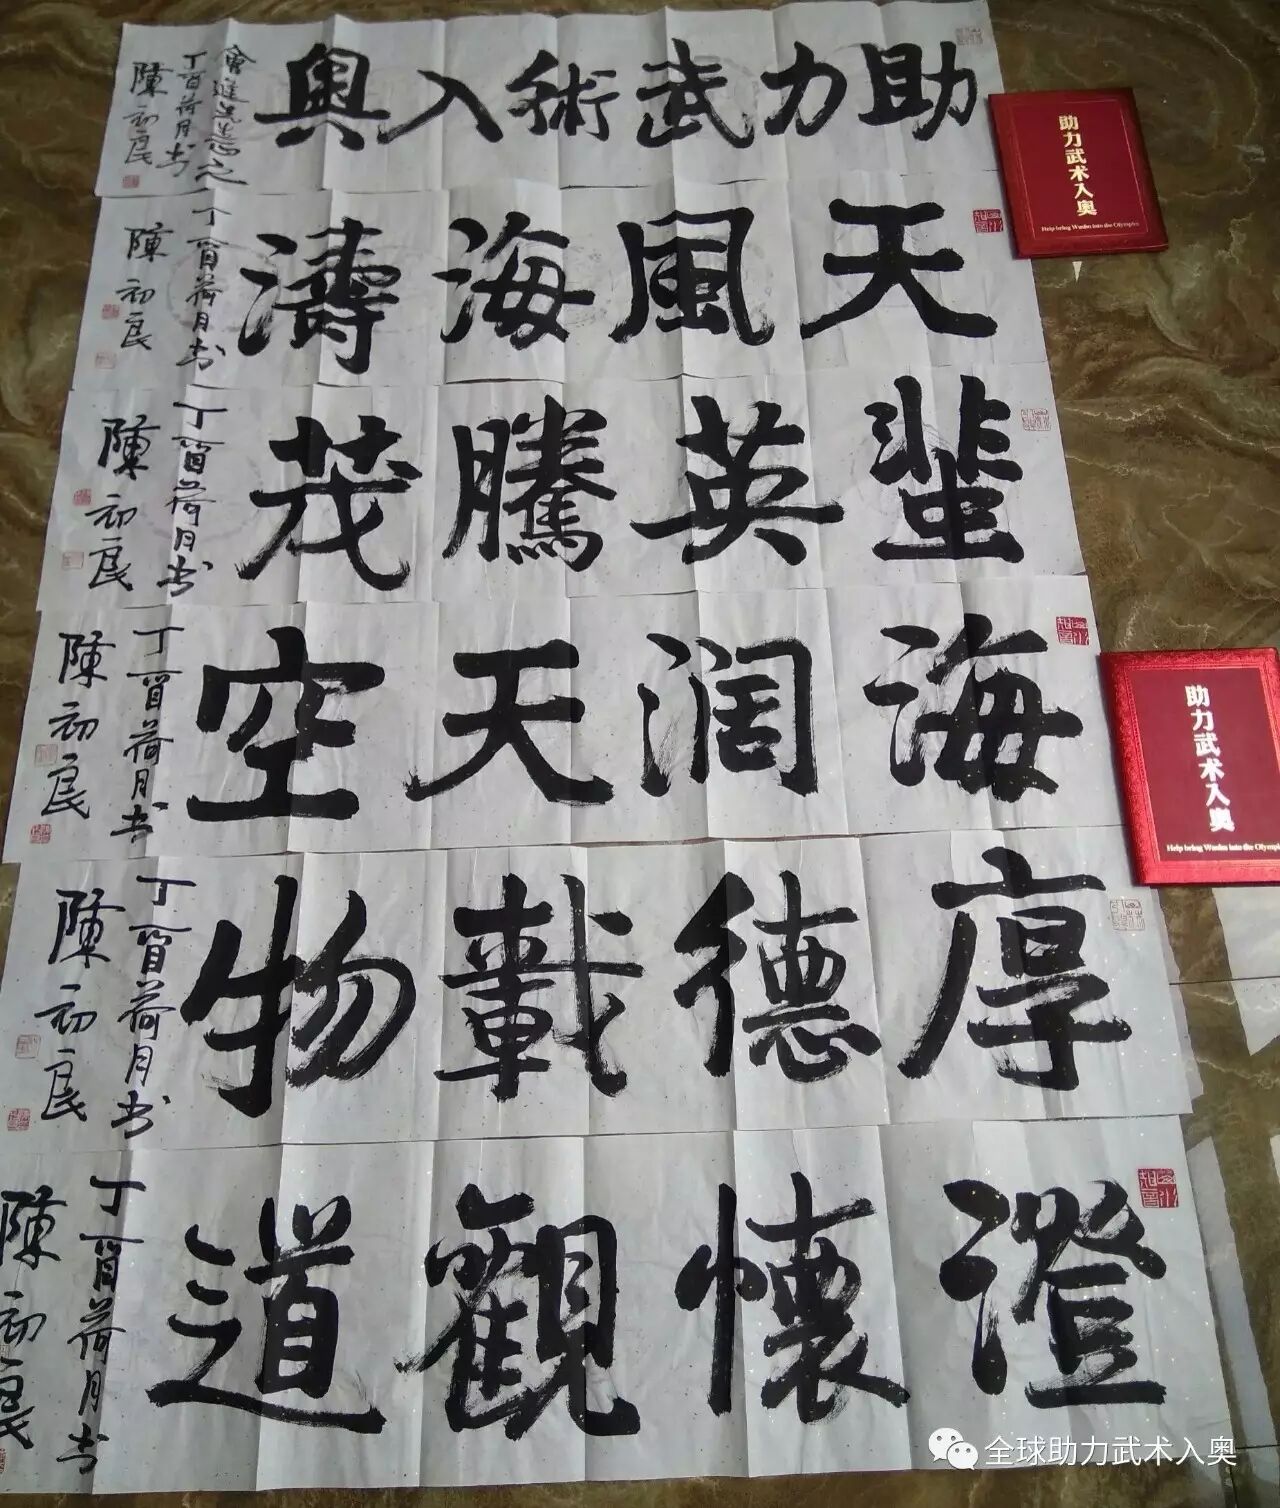 助力武術入奧
丁酉荷月书
陳初良
天風海濤
丁酉荷月书
陳初良
蜚英騰茂
丁酉荷月书
陳初良
海濶天空
丁酉荷月书
陳初良
厚德載物
丁酉荷月书
陳初良
澄懷觀道
丁酉荷月书
陳初良
助力武术入奥
Help bring Wushu into the Olympics
助力武术入奥
Help bring Wushu into the Olympi
全球助力武术入奥